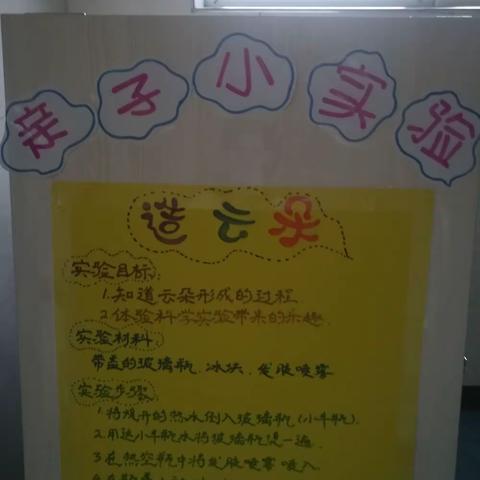 亲子小实验
造云朵
实验目标:
1.知道云朵形成的过程
2.体验科学实验带来的乐趣.
实验材料
带盖的玻璃瓶、冰块、发胶喷雾
实验步骤
1.将烧开的热水倒入玻璃瓶(小半瓶).
2.用这小半瓶水将玻璃瓶烫一遍.
3.在热空瓶中将发胶喷雾喷入.